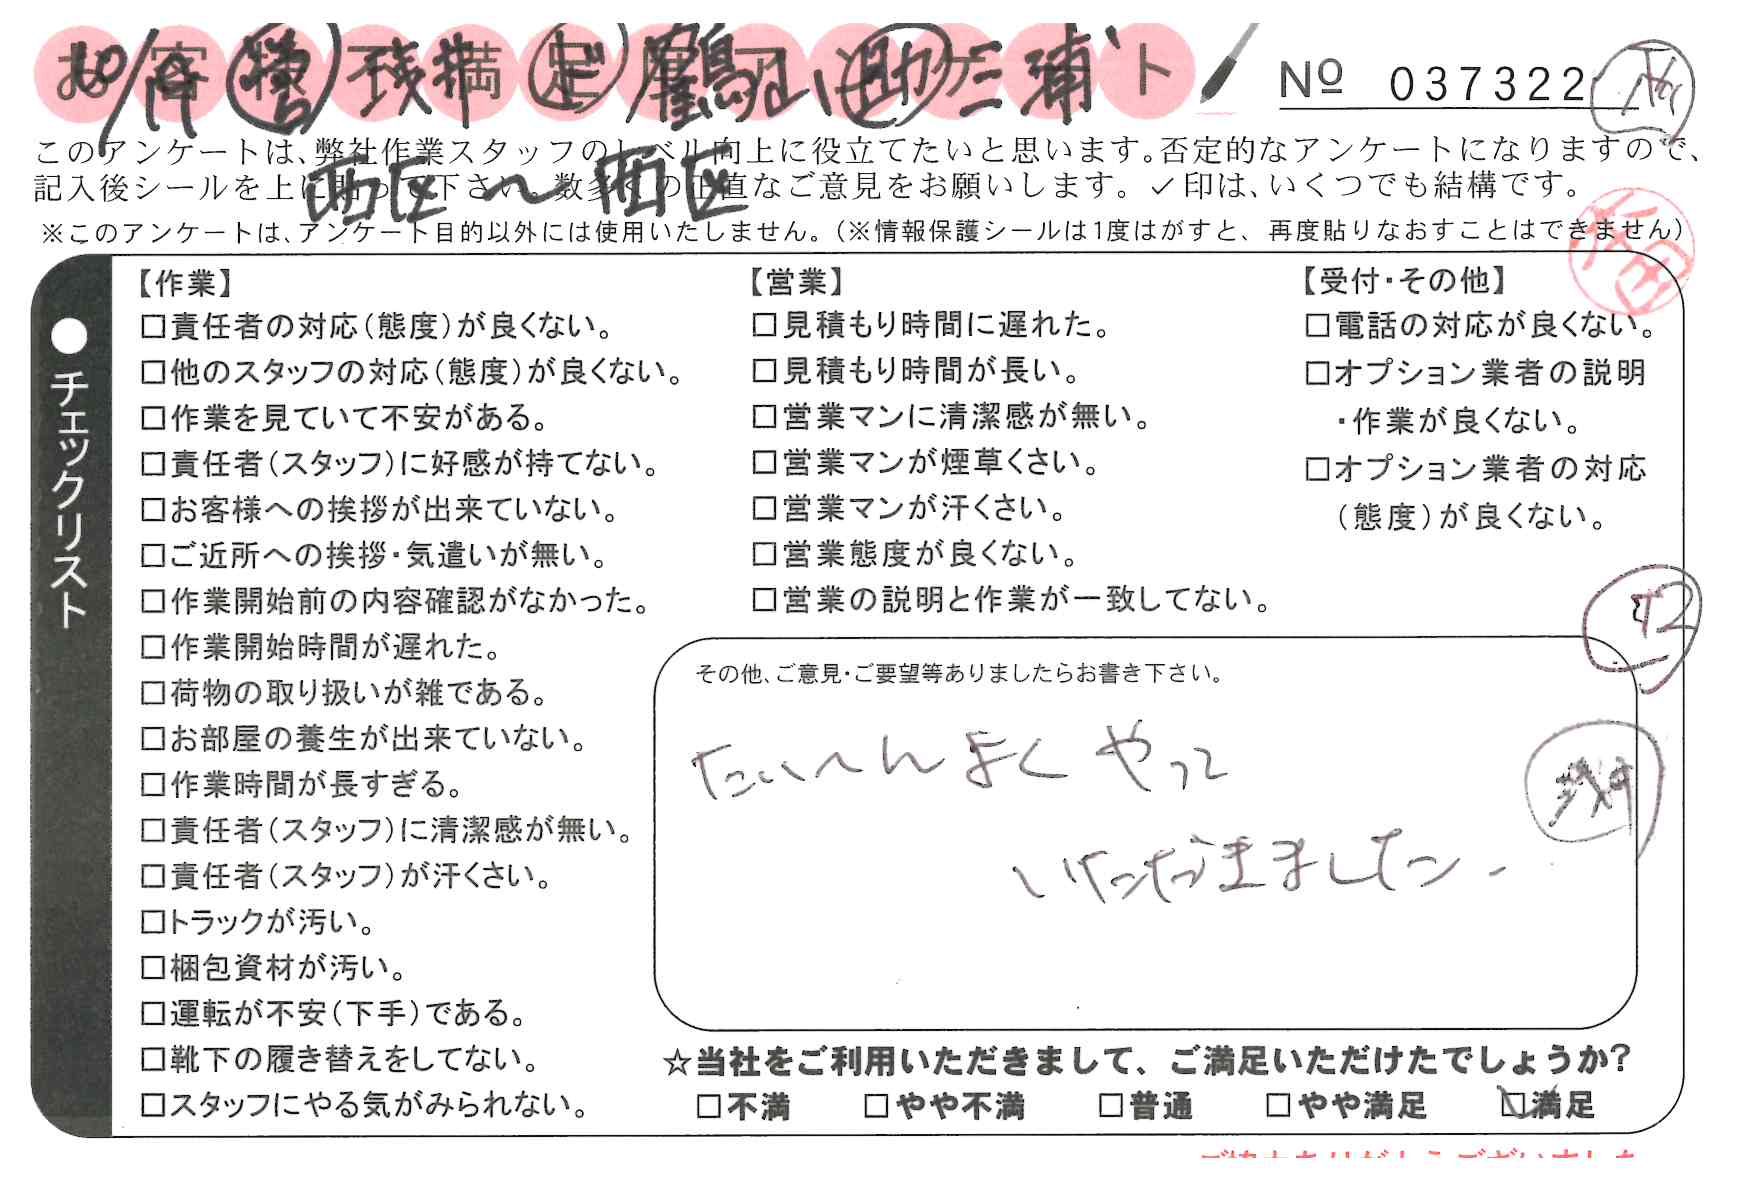 お客様不満足度アンケート
№ 037322
営 残井 ド 鶴山 助 三浦
西区〜西区
このアンケートは、弊社作業スタッフのレベル向上に役立てたいと思います。否定的なアンケートになりますので、
記入後シールを上に貼って下さい。数多くの正直なご意見をお願いします。✓印は、いくつでも結構です。
※このアンケートは、アンケート目的以外には使用いたしません。(※情報保護シールは1度はがすと、再度貼りなおすことはできません)
●チェックリスト
【作業】
□責任者の対応(態度)が良くない。
□他のスタッフの対応(態度)が良くない。
□作業を見ていて不安がある。
□責任者(スタッフ)に好感が持てない。
□お客様への挨拶が出来ていない。
□ご近所への挨拶・気遣いが無い。
□作業開始前の内容確認がなかった。
□作業開始時間が遅れた。
□荷物の取り扱いが雑である。
□お部屋の養生が出来ていない。
□作業時間が長すぎる。
□責任者(スタッフ)に清潔感が無い。
□責任者(スタッフ)が汗くさい。
□トラックが汚い。
□梱包資材が汚い。
□運転が不安(下手)である。
□靴下の履き替えをしてない。
□スタッフにやる気がみられない。
【営業】
□見積もり時間に遅れた。
□見積もり時間が長い。
□営業マンに清潔感が無い。
□営業マンが煙草くさい。
□営業マンが汗くさい。
□営業態度が良くない。
□営業の説明と作業が一致してない。
【受付・その他】
□電話の対応が良くない。
□オプション業者の説明
・作業が良くない。
□オプション業者の対応
(態度)が良くない。
その他、ご意見・ご要望等ありましたらお書き下さい。
たいへんよくやって
いただきました.
☆当社をご利用いただきまして、ご満足いただけたでしょうか?
□不満 □やや不満 □普通 □やや満足 ☑満足
ご協力ありがとうございました